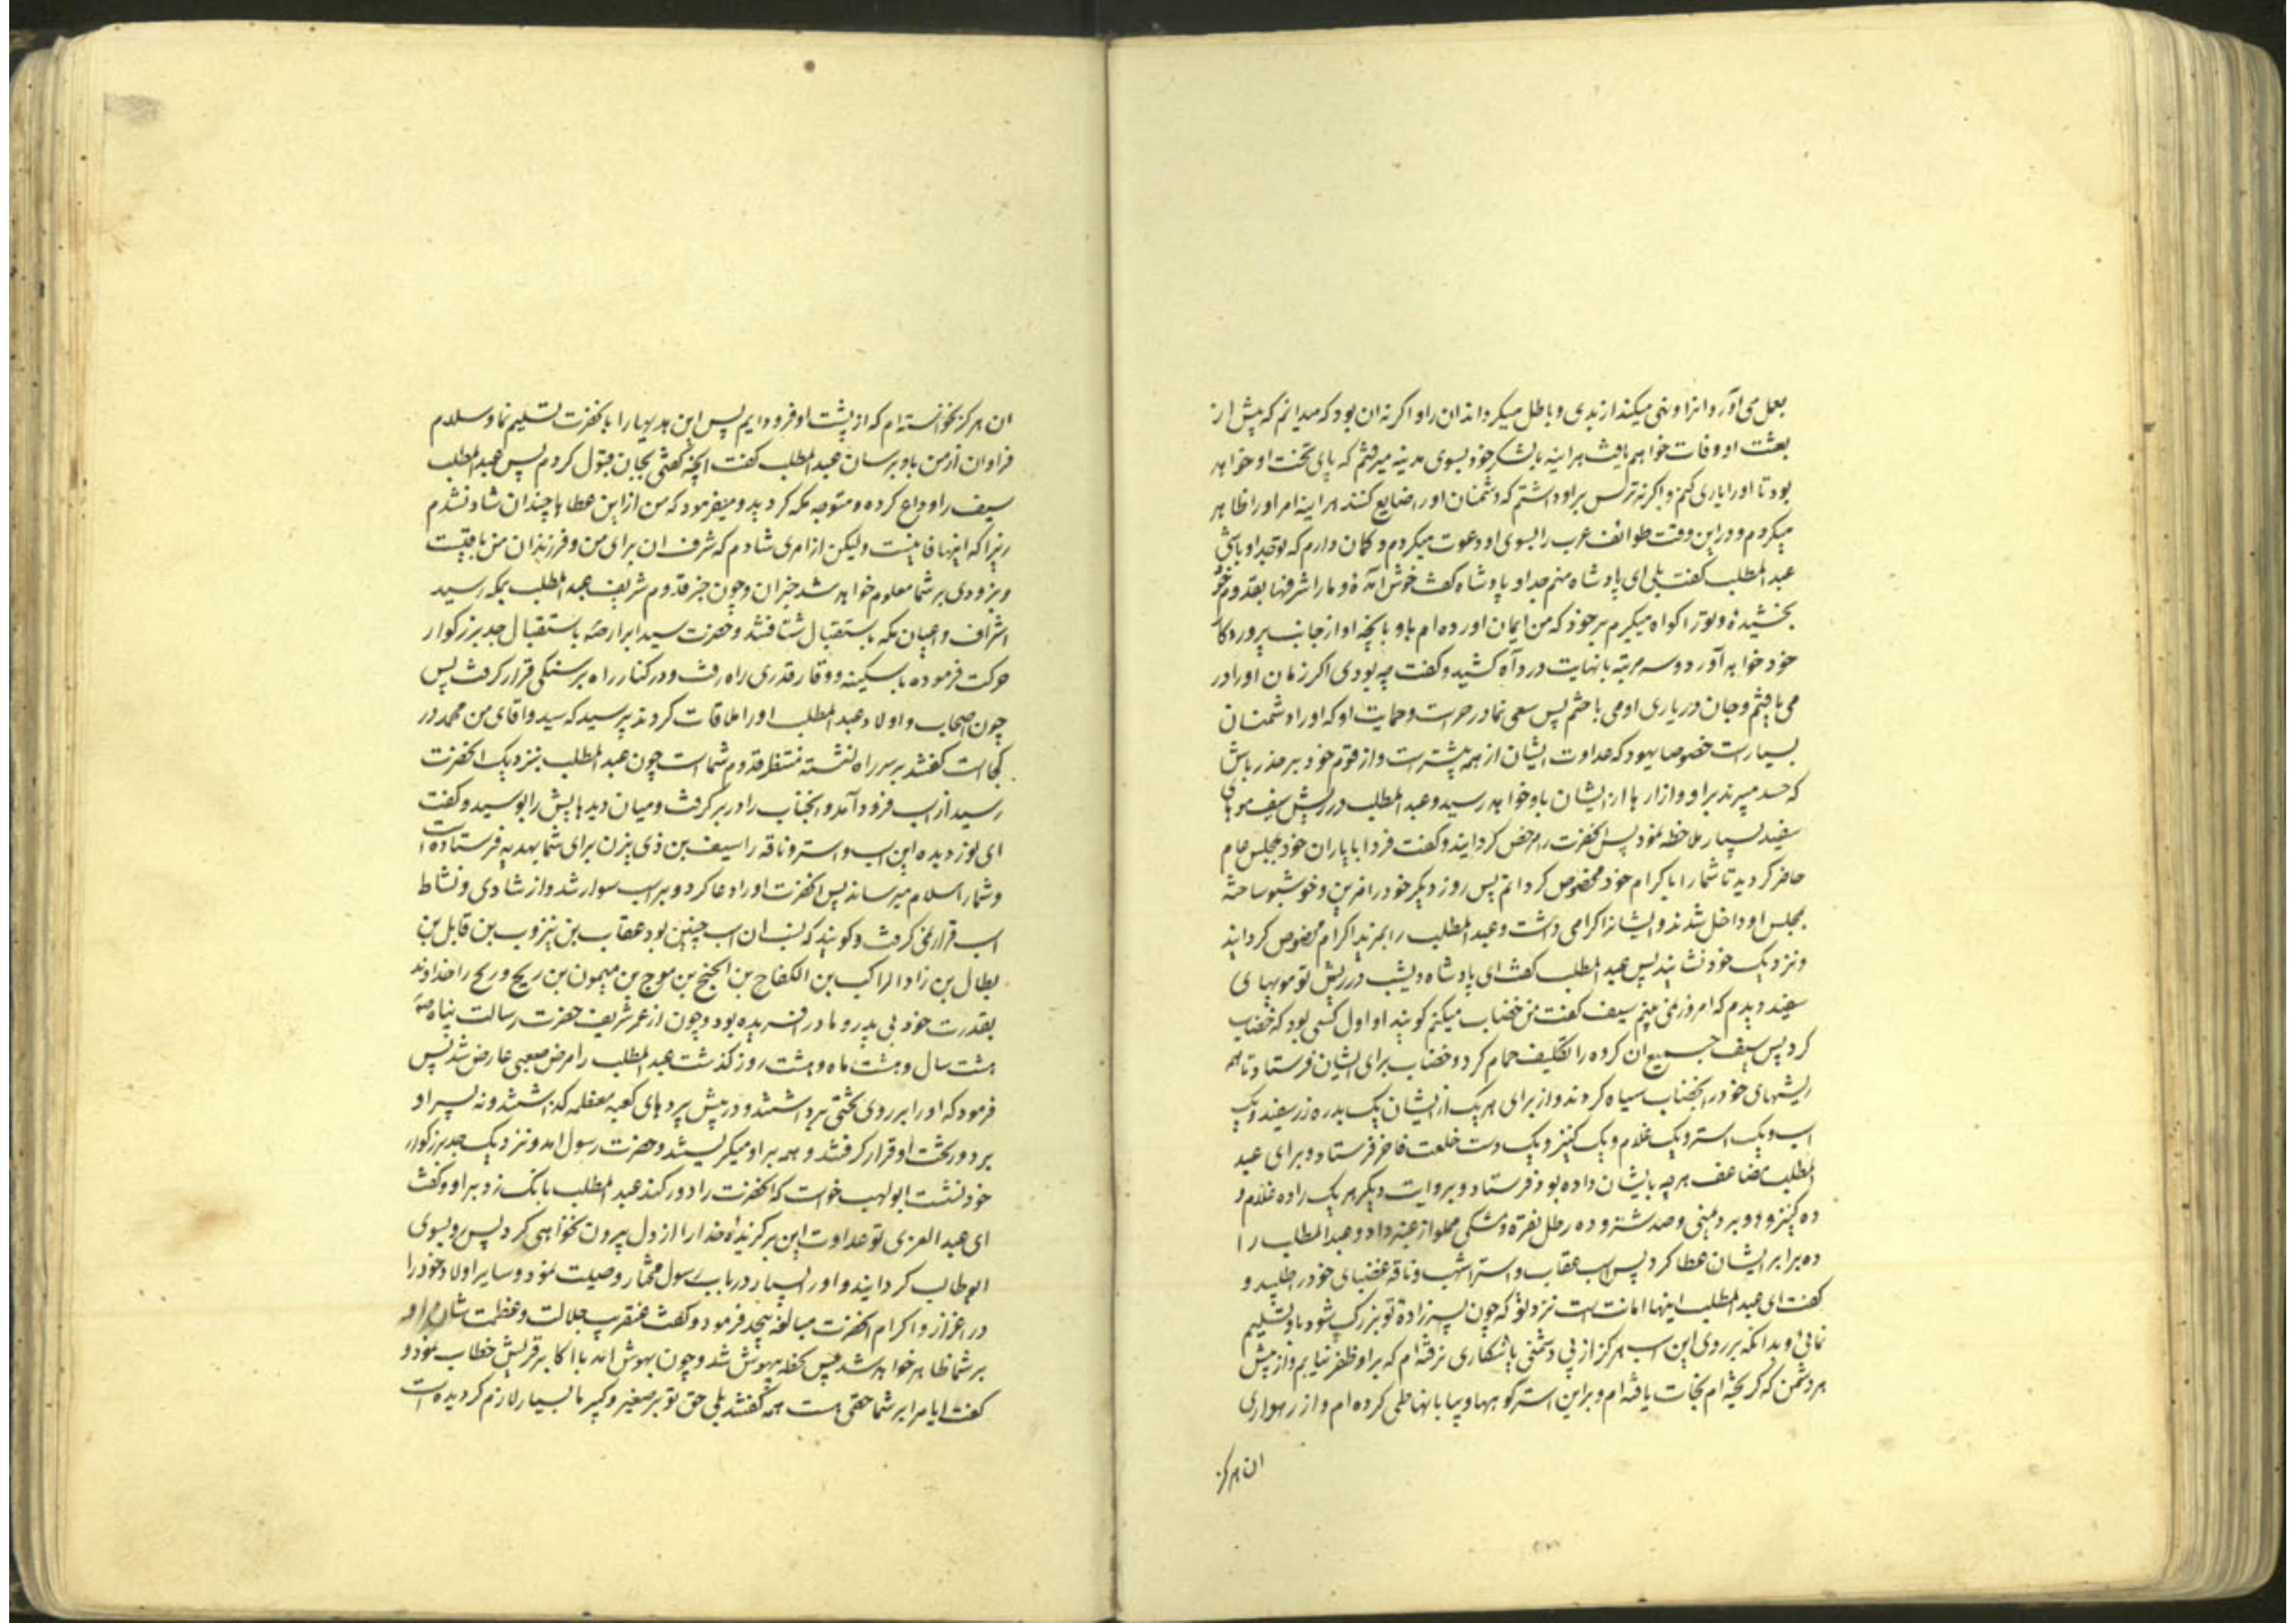 بعمل می آورد و انرا و نهی میکند از بدی و باطل میکرداند ان را و اکر نه ان بود که میدانم که پیش از
بعثت او وفات خواهم یافت هراینه با لشکر خود بسوی مدینه میرفتم که پای تخت او خواهد
بود تا او را یاری کنم و اکر نه ترس بر او داشتم که دشمنان او را ضایع کنند هراینه امر او را ظاهر
میکردم و در این وقت طوائف عرب را بسوی او دعوت میکردم و کمان دارم که تو جد او باشی
عبد المطلب کفت بلی ای پادشاه منم جد او پادشاه کفت خوش آمدهٔ و ما را شرفها بقدوم خود
بخشیدهٔ و تو را کواه میکرم بر خود که من ایمان اورده ام باو و بانچه او از جانب پروردکار
خود خواهد آورد و سه مرتبه با نهایت درد آه کشید و کفت چه بودی اکر زمان او را در
می یافتم و جان در یاری او می باختم پس سعی نما در حراست و حمایت او که او را دشمنان
بسیار است خصوصا یهود که عداوت ایشان از همه بیشتر است و از قوم خود بر حذر باش
که حسد میبرند بر او و ازارها از ایشان باو خواهد رسید و عبد المطلب در ریش سیف موهای
سفید بسیار ملاحظه نمود پس انحضرت را مرخص کردانید و کفت فردا با یاران خود بمجلس عام
حاضر کردید تا شما را باکرام خود مخصوص کردانم پس روز دیکر خود را مزین و خوشبو ساخته
بمجلس او داخل شدند و ایشانرا کرامی داشت و عبد المطلب را بمزید اکرام مخصوص کردانید
و نزدیک خود نشانید پس عبد المطلب کفت ای پادشاه دیشب در ریش تو مویهای
سفید دیدم که امروز نمی بینم سیف کفت من خضاب میکنم کویند او اول کسی بود که خضاب
کرد پس سیف جمیع ان کروه را تکلیف حمام کرد و خضاب برای ایشان فرستاد تا همه
ریشهای خود را بخضاب سیاه کردند و از برای هر یک از ایشان یک بدره زر سفید و یک
اسب و یک استر و یک غلام و یک کنیز و یک دست خلعت فاخر فرستاد و برای عبد
المطلب مضاعف هرچه بایشان داده بود فرستاد و بروایت دیکر هر یک را ده غلام و
ده کنیز و دو برد یمنی و صد شتر و ده رطل نقره و مشکی مملو از عنبر داد و عبد المطلب را
ده برابر ایشان عطا کرد پس اسب عقاب و استر اشهب و ناقه غضبای خود را طلبید و
کفت ای عبد المطلب اینها امانت است نزد تو که چون پسرزادهٔ تو بزرک شود باو تسلیم
نمائی و بدانکه بر روی این اسب هرکز از پی دشمنی یا شکاری نرفته ام که بر او ظفر نیابم و از پیش
هر دشمن که کریخته ام نجات یافته ام و بر این استر کوهها و بیابانها طی کرده ام و از رهواری
ان هرکز
ان هرکز نخواسته ام که از پشت او فرود ایم پس این هدیهها را بانحضرت تسلیم نما و سلام
فراوان از من باو برسان عبد المطلب کفت انچه کفتی بجان قبول کردم پس عبد المطلب
سیف را وداع کرده و متوجه مکه کردید و میفرمود که من از این عطاها چندان شاد نشدم
زیرا که اینها فانیست و لیکن از امری شادم که شرف ان برای من و فرزندان من باقیست
و بزودی بر شما معلوم خواهد شد خبر ان و چون خبر قدوم شریف عبد المطلب بمکه رسید
اشراف و اعیان مکه باستقبال شتافتند و حضرت سید ابرار صهٔ باستقبال جد بزرکوار
حرکت فرموده با سکینه و وقار قدری راه رفت و در کنار راه بر سنکی قرار کرفت پس
چون اصحاب و اولاد عبد المطلب او را ملاقات کردند پرسید که سید و اقای من محمد در
کجاست کفتند بر سر راه نشسته منتظر قدوم شما است چون عبد المطلب بنزدیک انحضرت
رسید از اسب فرود آمد و انجناب را در بر کرفت و میان دیدهایش را بوسید و کفت
ای نور دیده این اسب و استر و ناقه را سیف بن ذی یزن برای شما بهدیه فرستاده است
و شما را سلام میرساند پس انحضرت او را دعا کرد و بر اسب سوار شد و از شادی و نشاط
اسب قرار نمی کرفت و کویند که نسب ان اسب چنین بود عقاب بن ینزوب بن قابل بن
بطال بن زاد الراکب بن الکفاح بن الجنح بن موج بن میمون بن ریح و ریح را خداوند
بقدرت خود بی پدر و مادر افریده بود و چون از عمر شریف حضرت رسالت پناه صهٔ
هشت سال و هشت ماه و هشت روز کذشت عبد المطلب را مرض صعبی عارض شد پس
فرمود که او را بر روی تختی برداشتند و در پیش پردهای کعبه معظمه کذاشتند و نه پسر او
بر دور تخت او قرار کرفتند و همه بر او میکریستند و حضرت رسول امد و نزدیک جد بزرکوار
خود نشست ابو لهب خواست که انحضرت را دور کند عبد المطلب بانک زد بر او و کفت
ای عبد العزی تو عداوت این برکزیده خدا را از دل بیرون نخواهی کرد پس رو بسوی
ابو طالب کردانید و او را بسیار در باب رسول مختار وصیت نمود و سایر اولاد خود را
در اعزاز و اکرام انحضرت مبالغه بیحد فرمود و کفت عنقریب جلالت و عظمت شان او
بر شما ظاهر خواهد شد پس لحظه بیهوش شد و چون بهوش امد با اکابر قریش خطاب نمود و
کفت ایا مرا بر شما حقی هست همه کفتند بلی حق تو بر صغیر و کبیر ما بسیار لازم کردیده است